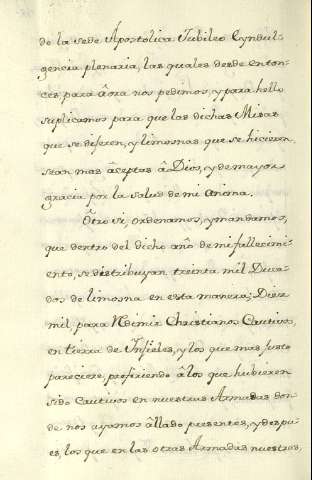 de la sede Apostolica Jubileo Cyndul-
gencia plenaria, las quales desde enton-
ces para âora nos pedimos, y para hello
suplicamos para que las dichas Misas
que se dijeren, y limosnas que se hicieren
sean mas âceptas â Dios, y de mayor
gracia por la salud de mi anima.
Ôtro si, ordenamos, y mandamos,
que dentro del dicho año de mi fallecimi-
ento, se distribuyan treinta mil Duca-
dos de limosna en esta manera; Diez
mil, para Redimir Christianos Cautivos,
en tierra de Infieles, y los que mas justo
pareciere, prefiriendo â los que hubieren
sido Cautivos en nuestras Armadas don-
de nos ayamos âllado presentes, y despu-
es, los que en las otras Armadas nuestras,